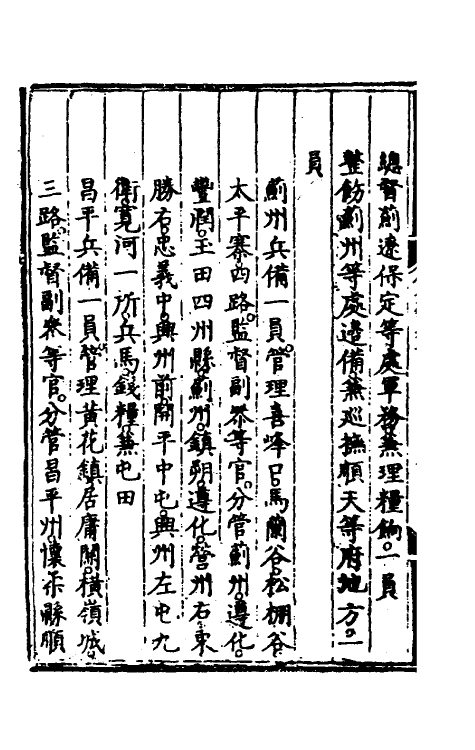 總督薊遼保定等處軍務兼理糧餉。一員
整飭薊州等處邊備。兼巡撫順天等府地方。一
員
薊州兵備一員。管理喜峰口。馬蘭谷。松棚谷
太平寨四路。監督副叅等官。分管薊州。遵化。
豐潤。玉田四州縣。薊州。鎮朔。遵化。營州右。東
勝右。忠義中。興州前。開平中屯。興州左屯九
衛。寛河一所。兵馬。錢糧。兼屯田
昌平兵備一員。管理黃花鎮。居庸關。橫嶺城。
三路。監督副叅等官。分管昌平州。懷柔縣順